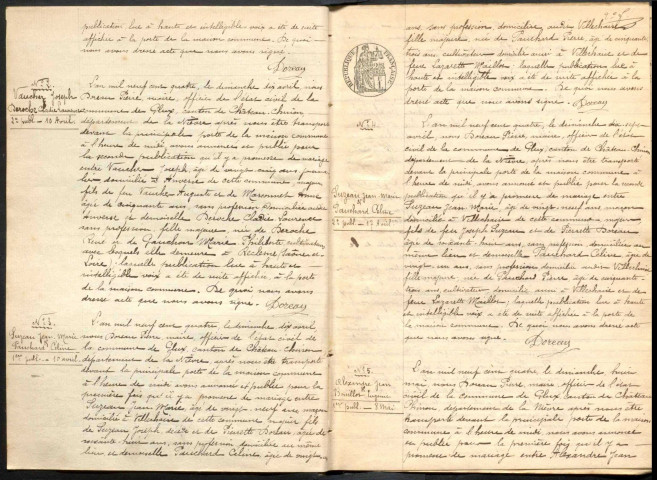 publication lue à haute et intelligible voix a été de suite
affichée à la porte de la maison commune. De quoi
nous avons dressé acte que nous avons signé.
Boreau
N° 23
Vaucher Joseph
Beroche Claudine Laurence
2e publ. - 10 Avril.
L'an mil neuf cent quatre, le dimanche dix avril, nous
Boreau Pierre, maire, officier de l'état civil de la
commune de Glux, canton de Château-Chinon,
département de la Nièvre après nous être transporté
devant la principale porte de la maison commune
à l'heure de midi, avons annoncé et publié pour
la seconde publication qu'il y a promesse de mariage
entre Vaucher Joseph, âgé de vingt cinq ans, 
domicilié à Anverse de cette commune, majeur,
fils de feu Vaucher Auguste et de Moronnet Anne
âgée de soixante ans, sans profession domiciliée audit
Anverse et demoiselle Beroche Claudine Laurence
sans profession, fille majeure, née de Beroche
René et de Gauthron Marie Philiberte cultivateurs
avec lesquels elle demeure à Reclesne Saône et
Loire, laquelle publication lue à haute et
intelligible voix a été de suite affichée à la porte
de la maison commune. De quoi nous avons
dressé acte que nous avons signé.
Boreau
Suzeau Jean Marie
Pauchard Céline
1re publ. - 10 avril.
L'an mil neuf cent quatre, le dimanche dix avril
nous Boreau Pierre, maire officier de l'état civil de la
commune de Glux, canton de Château Chinon
département de la Nièvre, après nous être transporté
devant la principale porte de la maison commune
à l'heure de midi avons annoncé et publié pour la
première fois qu'il y a promesse de mariage entre
Suzeau Jean Marie, âgé de vingt-neuf ans majeur
domicilié à Villechaise de cette commune majeur fils
de Suzeau Joseph décédé et de Pierrette Boreau, âgée de
soixante huit ans, sans profession domiciliée au même
lieu et demoiselle Pauchard Céline âgée de vingt-un
ans sans profession, domiciliée audit Villechaise
fille majeure, née de Pauchard Pierre, âgé de cinquante
trois ans, cultivateur domicilié aussi à Villechaise et de
feue Lazarette Maillot, laquelle publication lue à
haute et intelligible voix a été de suite affichée à la
porte de la maison commune. De quoi nous avons
dressé acte que nous avons signé.
Boreau
RÉPUBLIQUE FRANÇAISE
Suzeau Jean Marie
Pauchard Céline
2e publ. - 17 Avril
L'an mil neuf cent quatre, le dimanche dix-sept
avril nous Boreau Pierre, maire, officier de l'état
civil de la commune de Glux, canton de Château Chinon
département de la Nièvre, après nous être transporté
devant la principale porte de la maison commune
à l'heure de midi, avons annoncé et publié pour la seconde
publication qu'il y a promesse de mariage entre
Suzeau Jean Marie, âgé de vingt neuf ans,
domicilié à Villechaise de cette commune majeur
fils de feu Joseph Suzeau et de Pierrette Boreau
âgée de soixante huit ans, sans profession domiciliée au
même lieu et demoiselle Pauchard Céline âgée de
vingt-un ans, sans profession domiciliée audit Villechaise
fille majeure, née de Pauchard Pierre, âgé de cinquante
trois ans cultivateur domicilié aussi à Villechaise et de
feue Lazarette Maillot, laquelle publication lue à haute
et intelligible voix a été de suite affichée à la porte de
la maison commune. De quoi nous avons dressé acte
que nous avons signé.
Boreau
Alexandre Jean
1re publ. - 8 Mai
L'an mil neuf cent quatre le dimanche huit
mai, nous Boreau Pierre, maire officier de l'état
civil de la commune de Glux canton de Château
Chinon, département de la Nièvre après nous être
transporté devant la principale porte de la maison
commune à l'heure de midi, nous avons annoncé
et publié pour la première fois qu'il y a
promesse de mariage entre Alexandre Jean